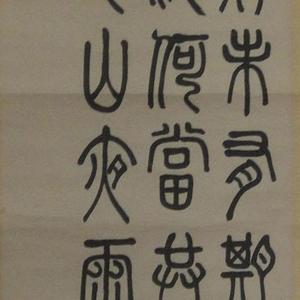 未有期
何當共
山夜雨